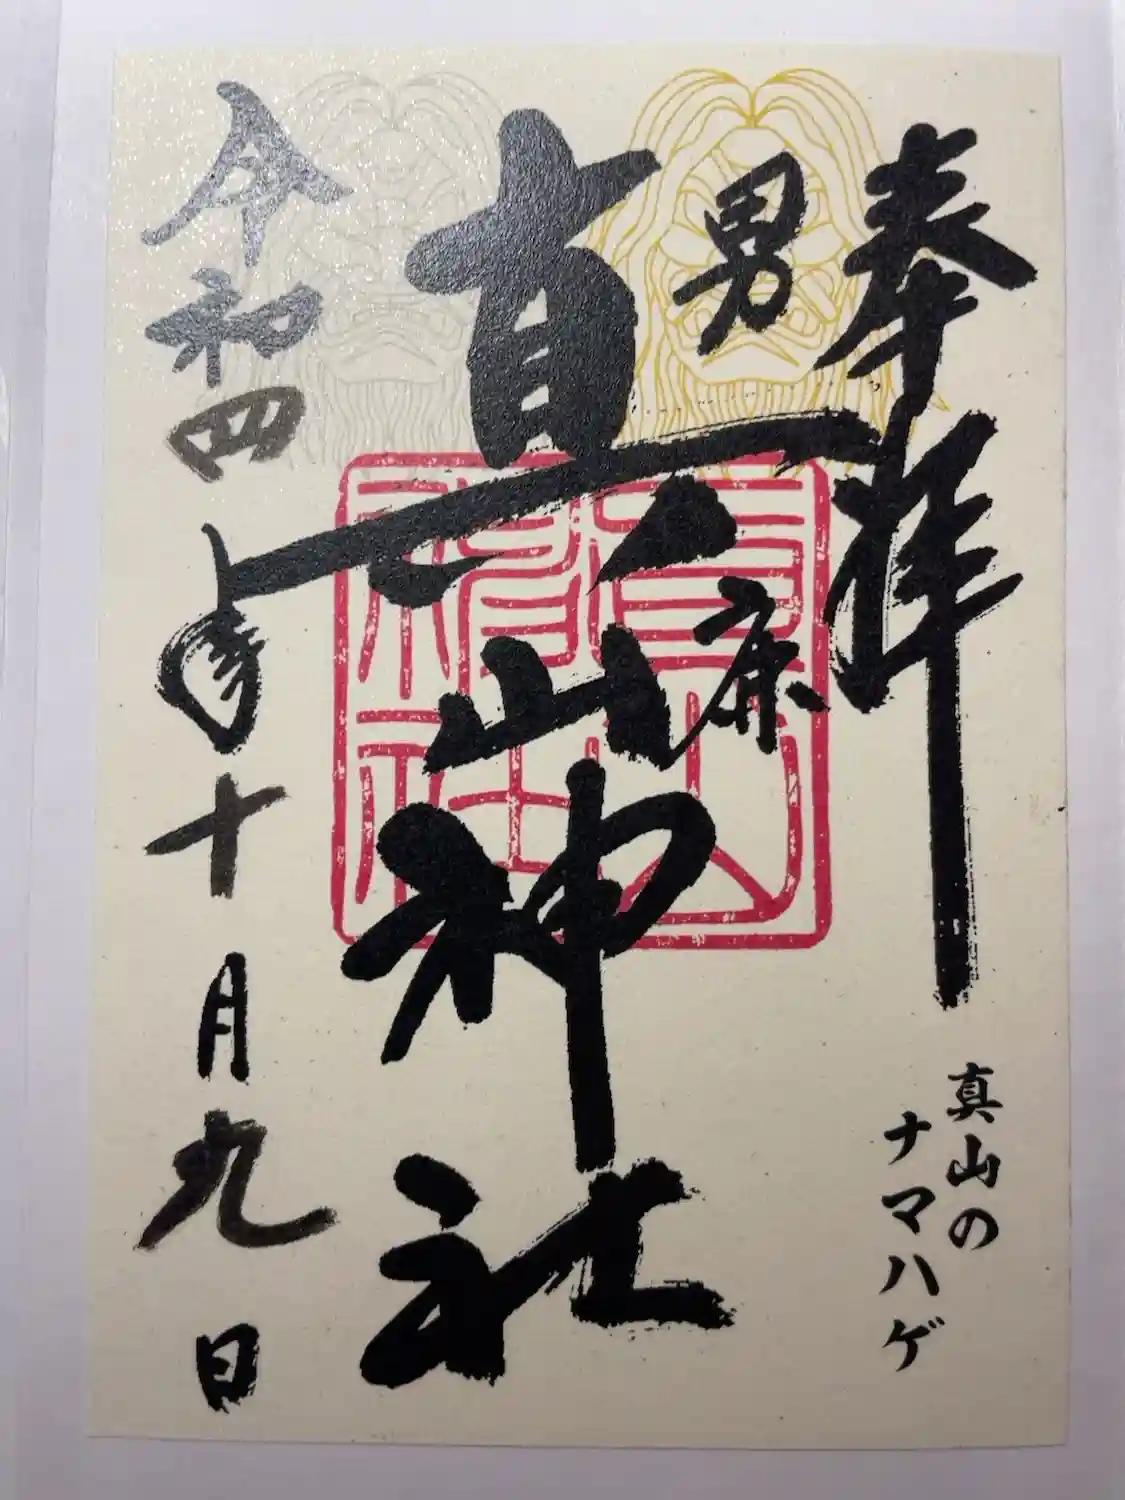 奉拝
真山の
ナマハゲ
男鹿
真山神社
令和四年十月九日
真山神社